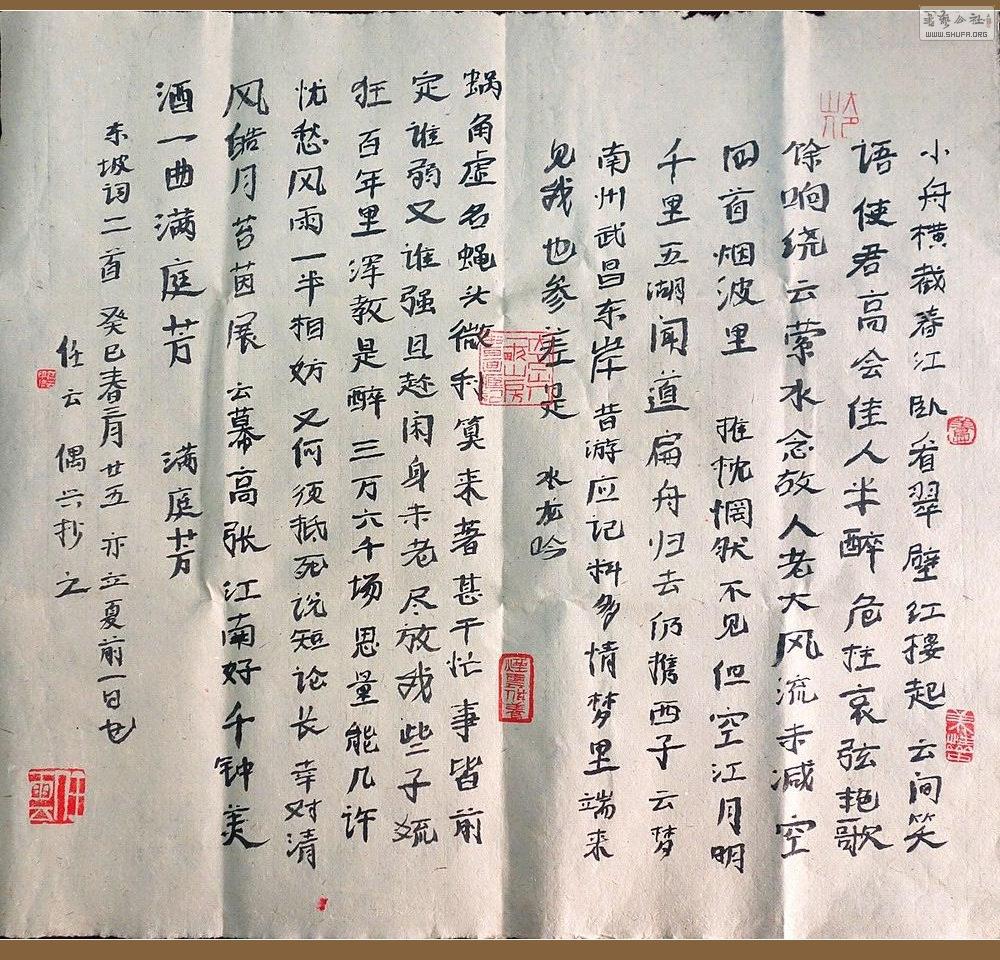 小舟横截春江卧看翠壁红楼起云间笑
语使君高会佳人半醉危柱哀弦艳歌
馀响绕云萦水念故人老大风流未减空
回首烟波里推枕惘然不见但空江月明
千里五湖闻道扁舟归去仍携西子云梦
南州武昌东岸昔游应记料多情梦里端来
见我也参差是 水龙吟
蜗角虚名蝇头微利算来著甚干忙事皆前
定谁弱又谁强且趁闲身未老尽放我些子疏
狂百年里浑教是醉三万六千场思量能几许
忧愁风雨一半相妨又何须抵死说短论长幸对清
风皓月苔茵展云幕高张江南好千钟美
酒一曲满庭芳 满庭芳
东坡词二首癸巳春三月廿五亦立夏前一日也
任云偶兴抄之
书艺公社
WWW.SHUFA.ORG